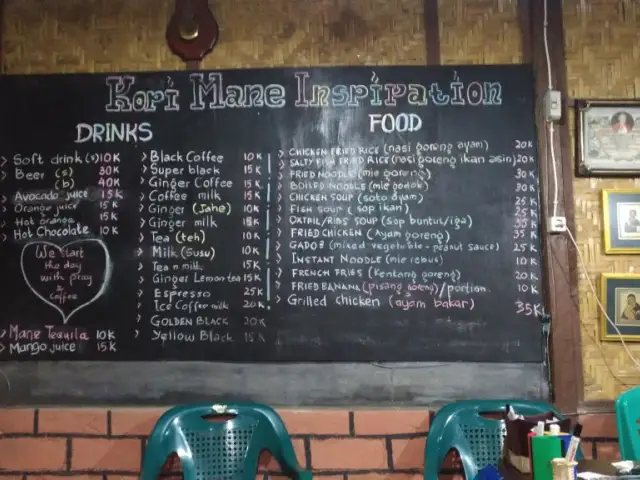 Kopi Mane Inspiration
DRINKS
Soft drink (s) 10K
Beer (s) 30K
(b) 40K
Avocado juice 15K
Orange juice 15K
Hot orange 15K
Hot Chocolate 10K
We start
the day
with pray
&
coffee
Mane Tequila 10K
Mango juice 15K
Black Coffee 10K
Super black 15K
Ginger Coffee 15K
Coffee milk 15K
Ginger (Jahe) 10K
Ginger milk 15K
Tea (teh) 10K
Milk (Susu) 10K
Tea n milk 15K
Ginger Lemon tea 15K
Espresso 25K
Ice Coffee milk 20K
GOLDEN BLACK 20K
Yellow Black 15K
FOOD
CHICKEN FRIED RICE (nasi goreng ayam) 20K
SALTY FISH FRIED RICE (nasi goreng ikan asin) 20K
FRIED NOODLE (mie goreng) 30K
BOILED NOODLE (mie godok) 30K
CHICKEN SOUP (soto ayam) 25K
FISH SOUP (sop ikan) 25K
OXTAIL/RIBS SOUP (sop buntus/iga) 35K
FRIED CHICKEN (Ayam goreng) 35K
GADO2 (mixed vegetable - peanut sauce) 25K
INSTANT NOODLE (mie rebus) 10K
FRENCH FRIES (Kentang goreng) 20K
FRIED BANANA (pisang goreng)/portion 10K
Grilled chicken (ayam bakar) 35K